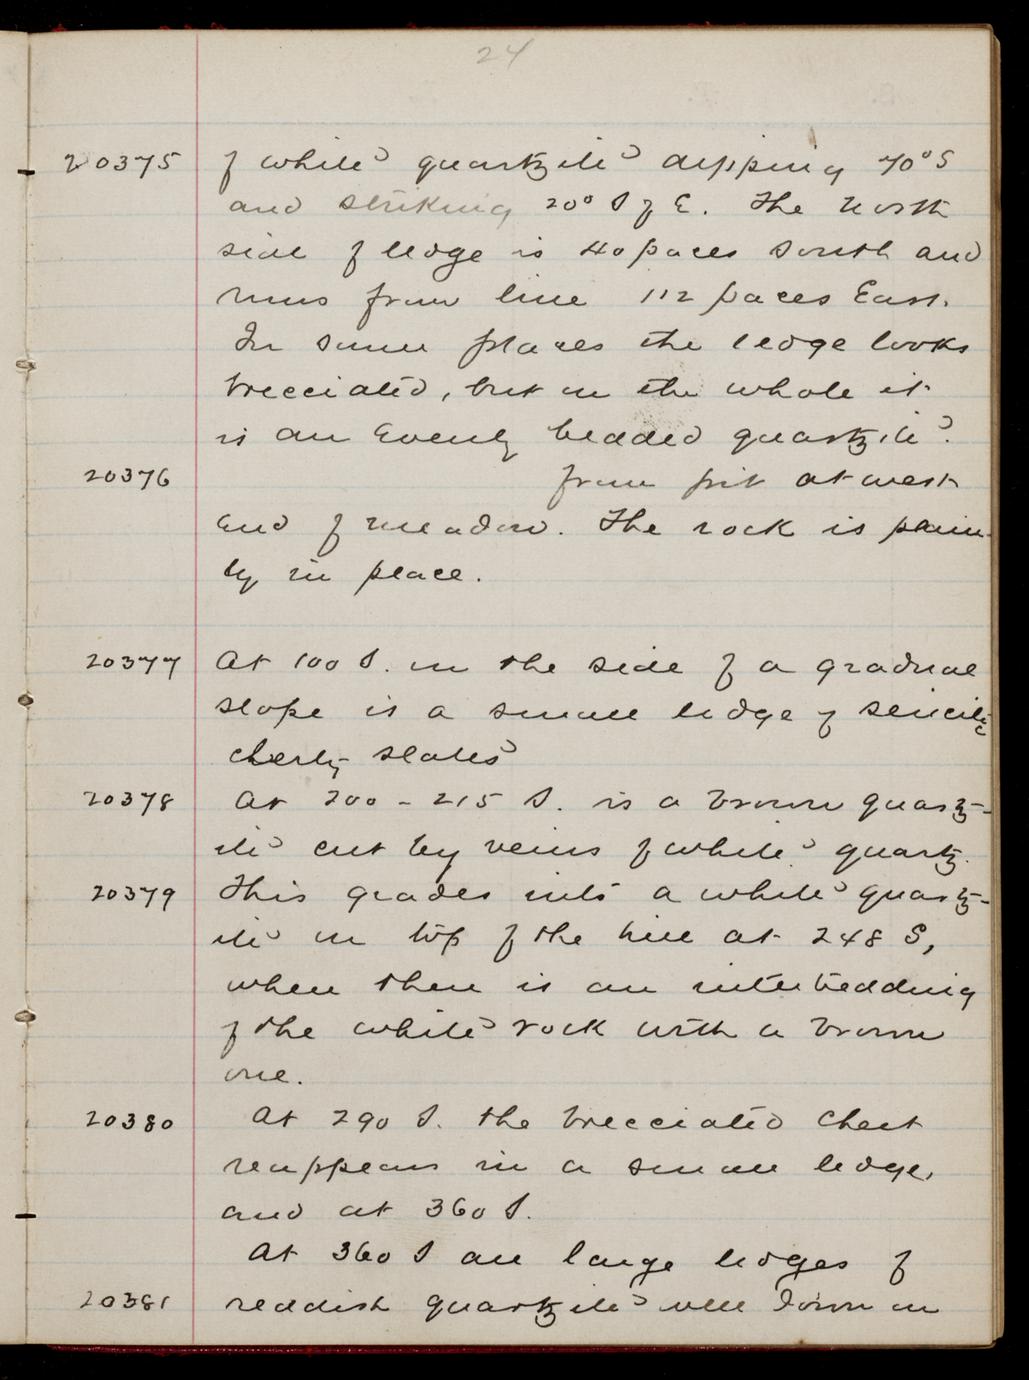 24
20375 of white quartzite dipping 70° S
and striking 20° S of E. The North
side of ledge is 40 paces South and
runs from line 112 paces East.
In some places the ledge looks
brecciated, but on the whole it
is an evenly bedded quartzite.
20376 from pit at west
end of meadow. The rock is plain-
ly in place.
20377 At 100 S. on the side of a gradual
slope is a small ledge of sericitic
cherty slates
20378 At 200 - 215 S. is a brown quartz-
ite cut by veins of white quartz.
20379 This grades into a white quartz-
ite on top of the hill at 248 S,
when there is an interbedding
of the white rock with a brown
one.
20380 At 290 S. the brecciated chert
reappears in a small ledge,
and at 360 S.
At 360 S are large ledges of
20381 reddish quartzite well down on